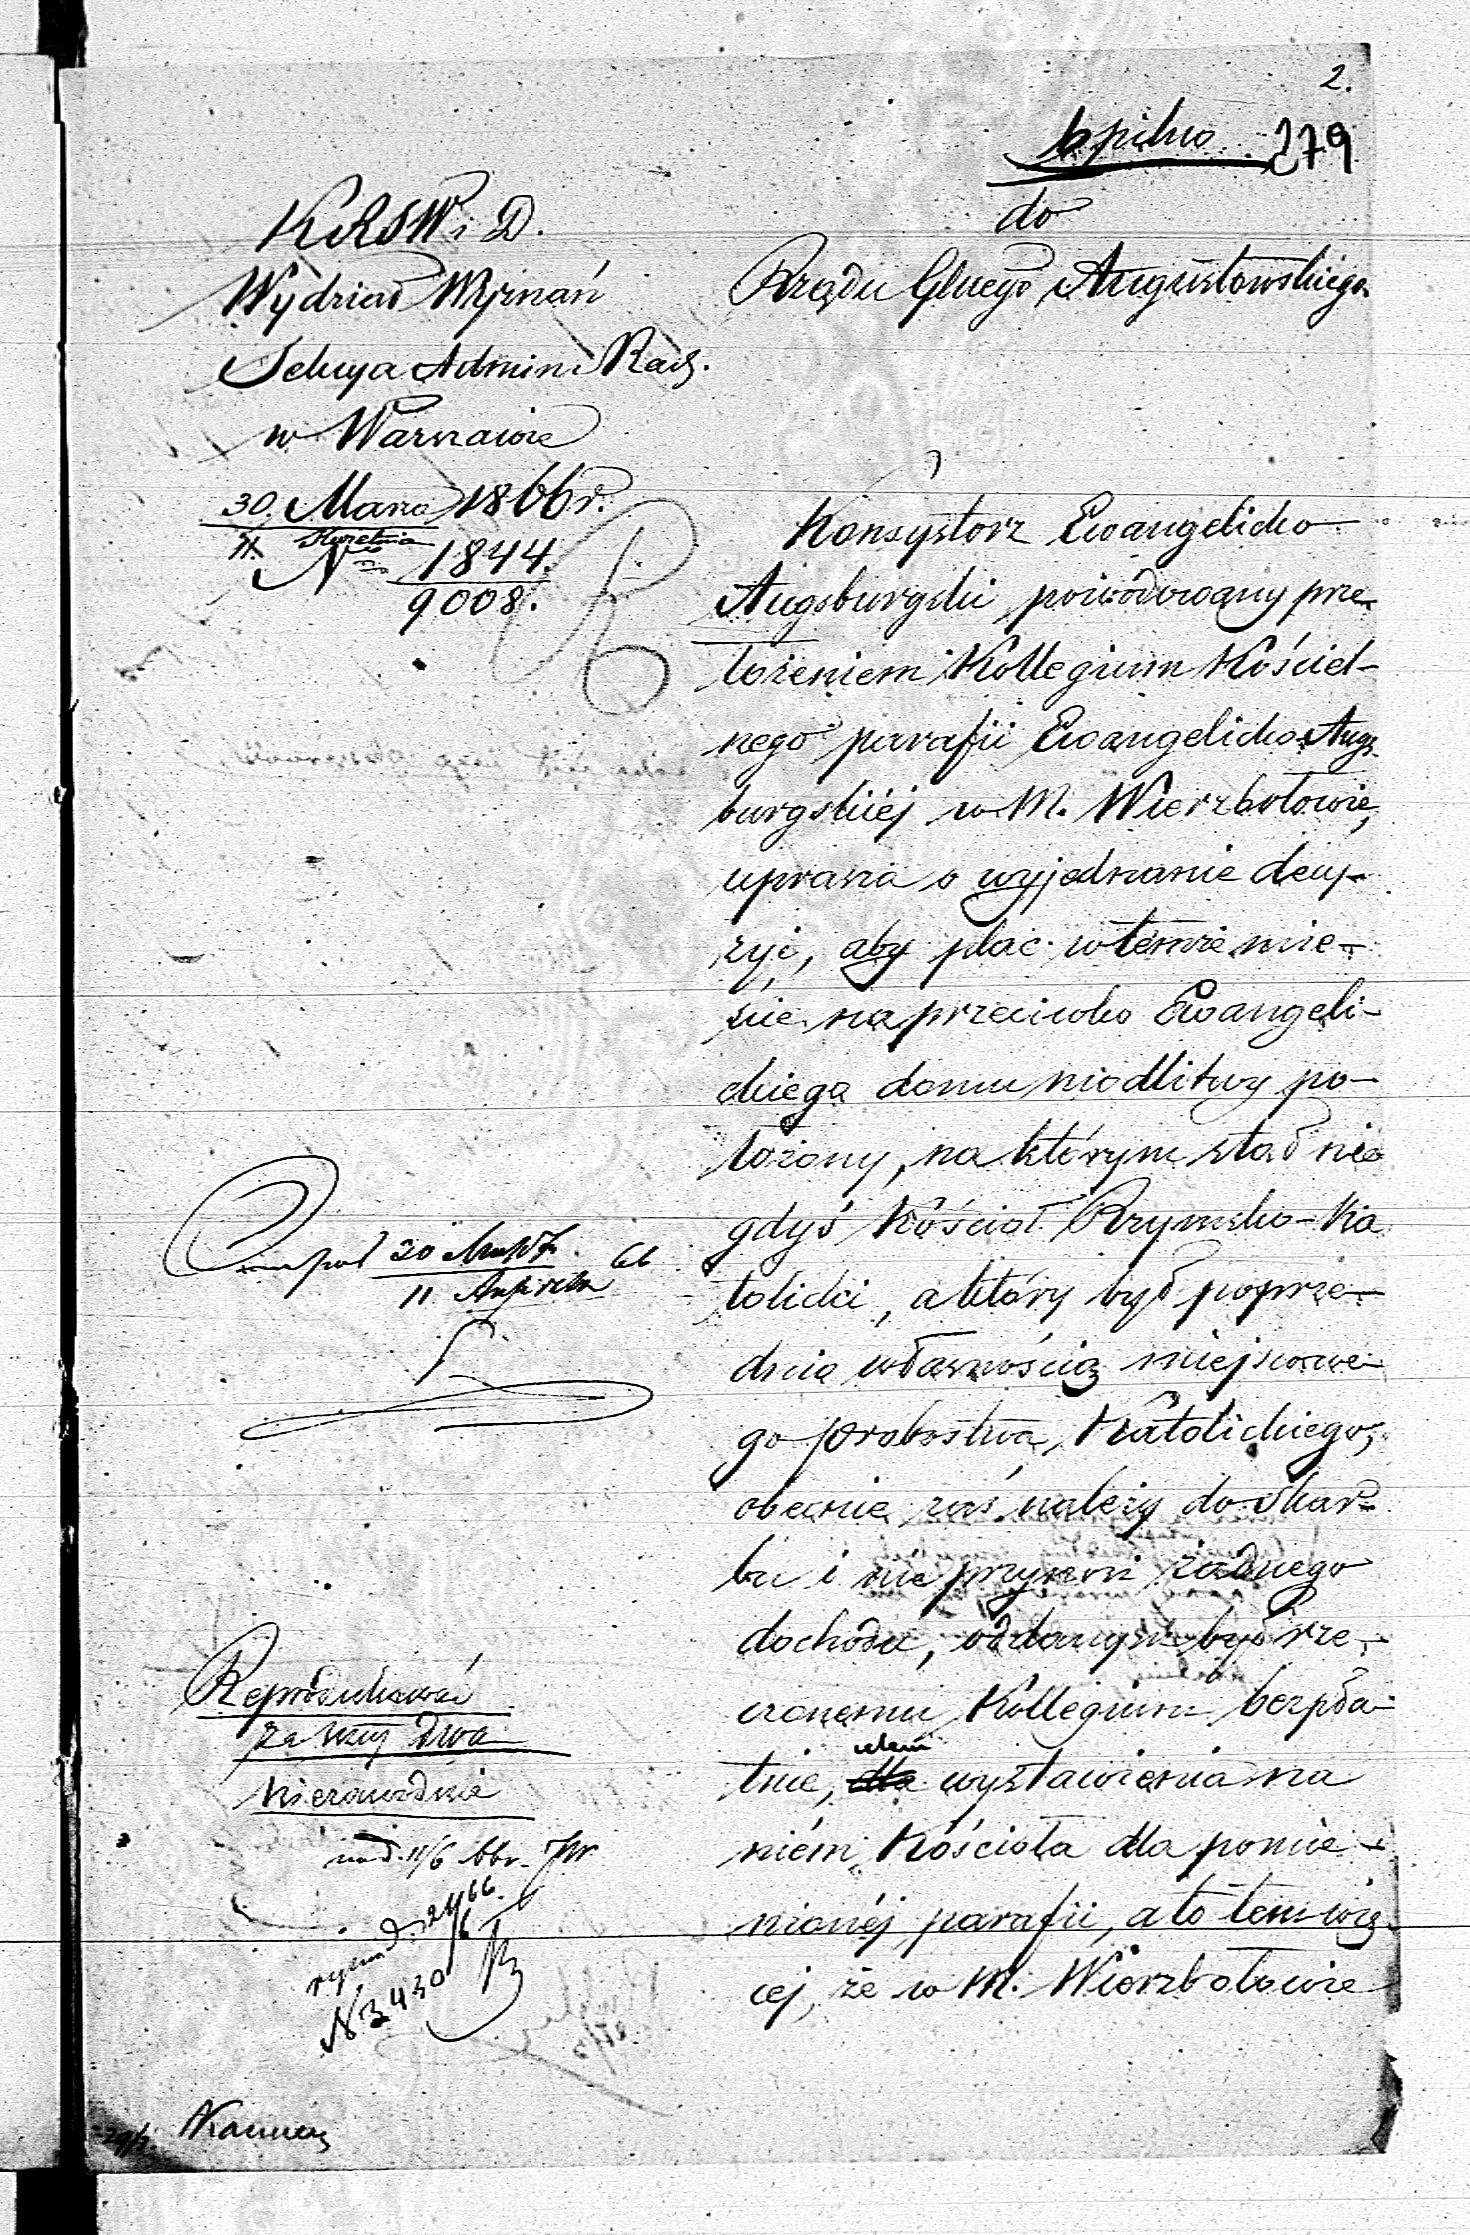 2.
b pilno 279
do
KRSW i D.
Wydział Wyznań
Sekcya Admin. Rach.
w Warszawie
30. Marca 1866 r.
11. Kwietnia
No 1844.
9008.
Rządu Glnego Augustowskiego
Konsystorz Ewangelicko
Augsburgski powodowany prze
łożeniem Kollegium Kościel-
nego parafii Ewangelicko Augs
burgskiéj w M. Wierzbołowie,
uprasza o wyjednanie decy-
zyi, aby plac w témże mie-
ście naprzeciwko Ewangeli-
ckiego domu modlitwy po-
łożony, na którym stał nie
gdyś Kościół Rzymsko-Ka
tolicki, a który był poprze-
dnio własnością miejscowe-
go probostwa Katolickiego,
obecnie zaś należy do Skar-
bu i nie przynosi żadnego
dochodu, oddanym był rze-
czonemu Kollegium bezpła-
tnie, dla celem wystawienia na
niém Kościoła dla pomie-
nionéj parafii, a to tem wię-
cej, że w M. Wierzbołowie
30
11
66
Reprodukować
za dwa
nad. 11/6 66 r.
N 3430